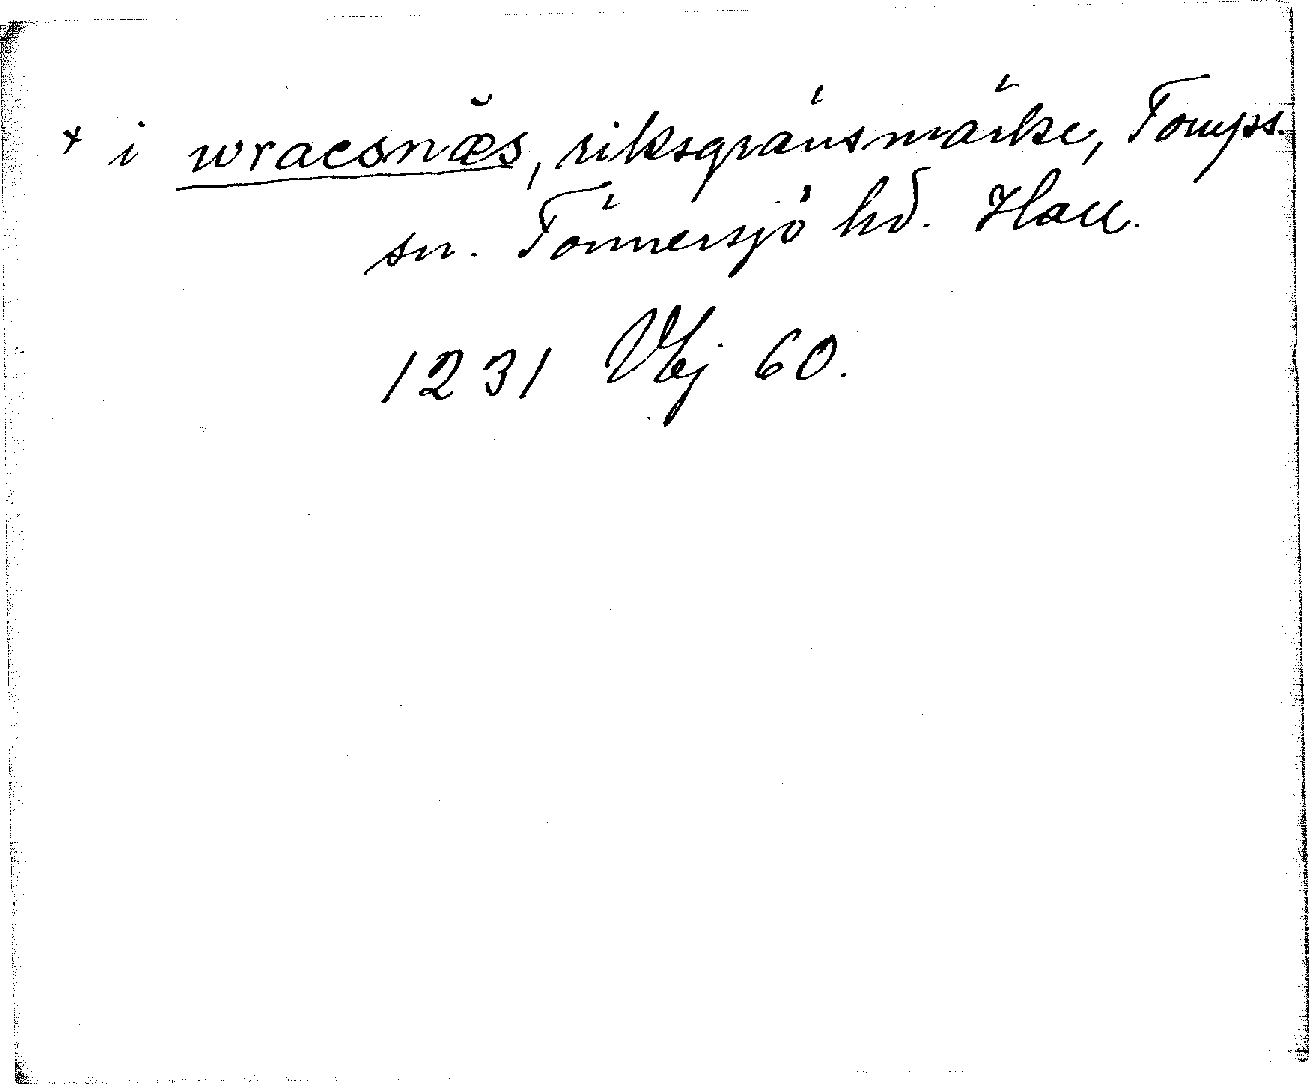 + i wracsnæ̆s, riksgränsmärke, Tönnersjö
sn. Tönnersjö hd. Hall.
1231 Vbj 60.